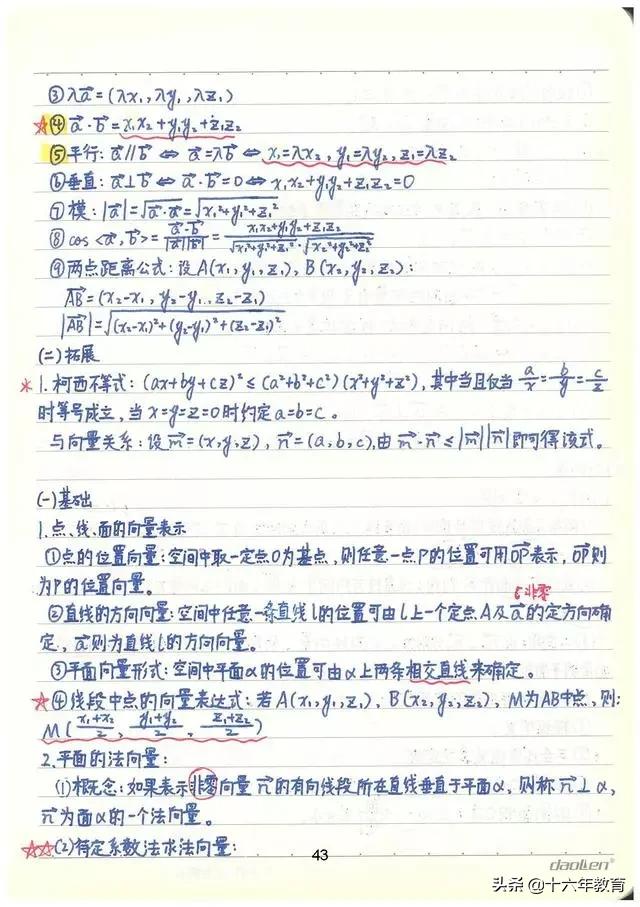 ③ λa⃗=(λx₁,λy₁,λz₁)
☆④ a⃗·b⃗=x₁x₂+y₁y₂+z₁z₂
⑤平行: a⃗∥b⃗ ⇔ a⃗=λb⃗ ⇔ x₁=λx₂, y₁=λy₂, z₁=λz₂
⑥垂直: a⃗⊥b⃗ ⇔ a⃗·b⃗=0 ⇔ x₁x₂+y₁y₂+z₁z₂=0
⑦模: |a⃗|=√(a⃗·a⃗)=√(x₁²+y₁²+z₁²)
⑧cos<a⃗,b⃗>=(a⃗·b⃗)/(|a⃗||b⃗|)=(x₁x₂+y₁y₂+z₁z₂)/(√(x₁²+y₁²+z₁²)·√(x₂²+y₂²+z₂²))
⑨两点距离公式:设A(x₁,y₁,z₁), B(x₂,y₂,z₂):
AB⃗=(x₂-x₁, y₂-y₁, z₂-z₁)
|AB⃗|=√((x₂-x₁)²+(y₂-y₁)²+(z₂-z₁)²)
(二)拓展
*1.柯西不等式: (ax+by+cz)²≤(a²+b²+c²)(x²+y²+z²), 其中当且仅当a/x=b/y=c/z
时等号成立,当x=y=z=0时约定a=b=c。
与向量关系:设m⃗=(x,y,z), n⃗=(a,b,c),由m⃗·n⃗≤|m⃗||n⃗|即可得该式。
(一)基础
1.点、线、面的向量表示
①点的位置向量:空间中取一定点O为基点,则任意一点P的位置可用OP⃗表示,OP⃗则
为P的位置向量。
非零
②直线的方向向量:空间中任意一条直线l的位置可由l上一个定点A及a⃗的定方向确
定,a⃗则为直线l的方向向量。
③平面向量形式:空间中平面α的位置可由α上两条相交直线来确定。
☆④线段中点的向量表达式:若A(x₁,y₁,z₁), B(x₂,y₂,z₂), M为AB中点,则:
M((x₁+x₂)/2, (y₁+y₂)/2, (z₁+z₂)/2)
2.平面的法向量:
(1)概念:如果表示非零向量n⃗的有向线段所在直线垂直于平面α,则称n⃗⊥α,
n⃗为面α的一个法向量。
☆☆(2)待定系数法求法向量:
43
daolen
头条@十六年教育